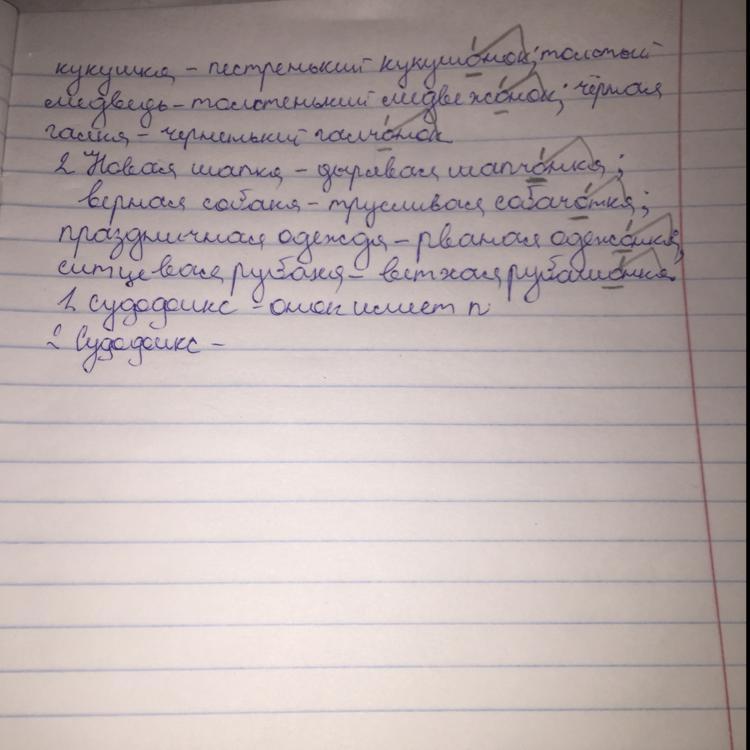 кукушка – пестренький кукушонок; толстый
медведь – толстенький медвежонок; чёрная
галка – черненький галчонок
2 Новая шапка – дырявая шапчонка;
верная собака – трусливая собачонка;
праздничная одежда – рваная одежонка,
ситцевая рубаха – ветхая рубашонка.
1. Суффикс – онок имеет п
2 Суффикс –